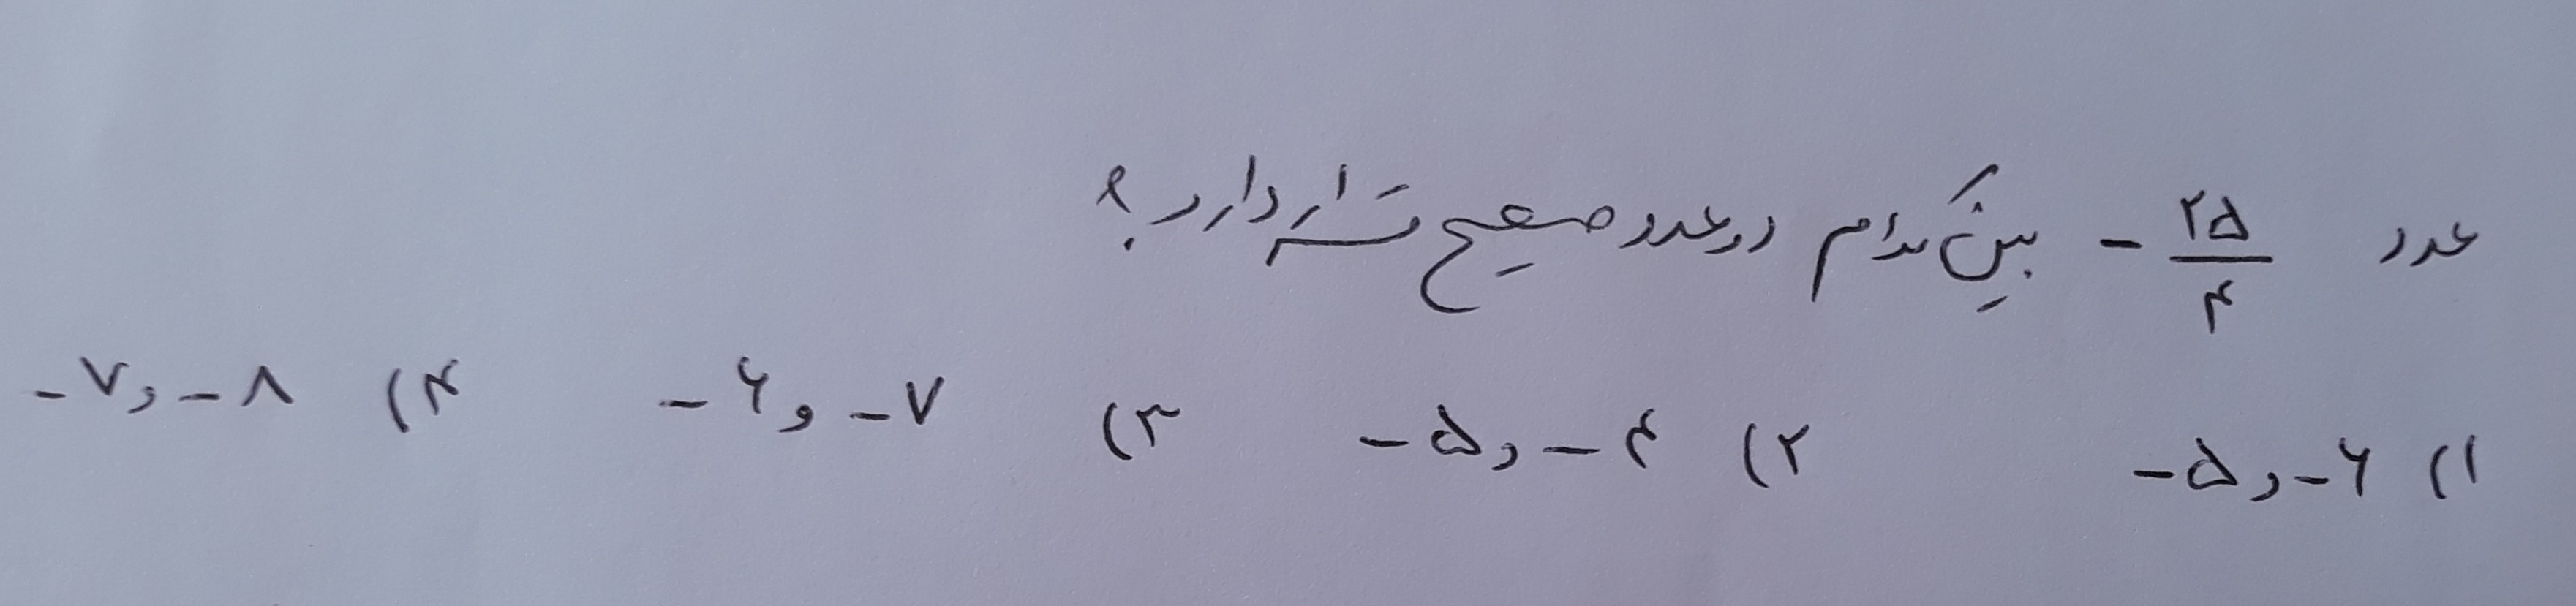 عدد -۲۵/۴ بین کدام دو عدد صحیح قرار دارد؟
۱) ۶- و ۵- ۲) ۴- و ۵- ۳) ۷- و ۶- ۴) ۸- و ۷-